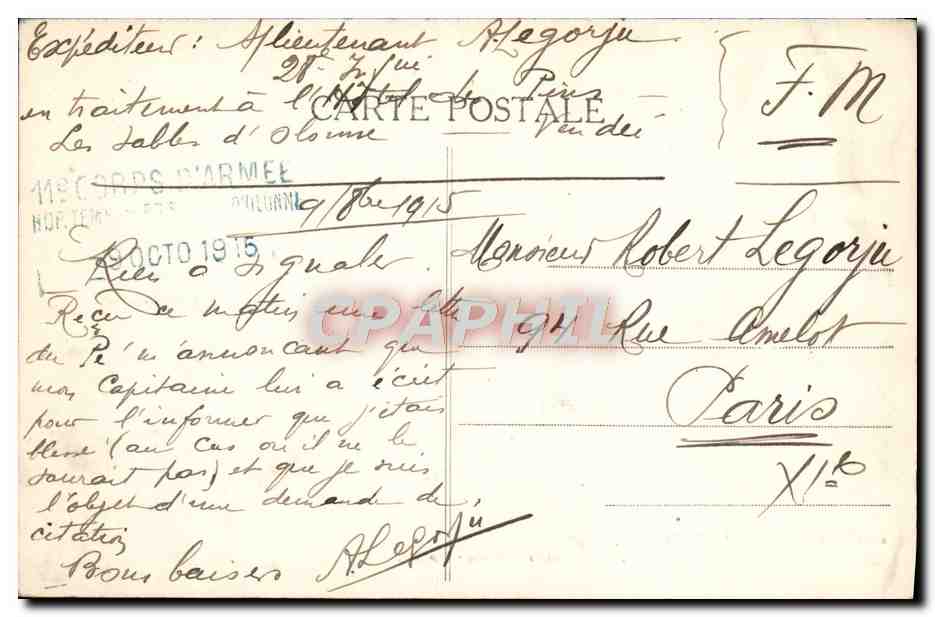 Expéditeur : S/lieutenant A. Legorju
28e
en traitement à l'Hôtel des Pins
Les Sables d'Olonne Vendée
F. M
CARTE POSTALE
11e CORPS D'ARMEE
HOP. TEMP.
9 OCTO 1915
9/8bre 1915
Rien à signaler.
Reçu ce matin une lettre
du Pé m'annonçant que
mon Capitaine lui a écrit
pour l'informer que j'étais
blessé (au cas où il ne le
saurait pas) et que je suis
l'objet d'une demande de
citation
Bons baisers A. Legorju
Monsieur Robert Legorju
94 Rue Amelot
Paris
XIe
CPAPHIL